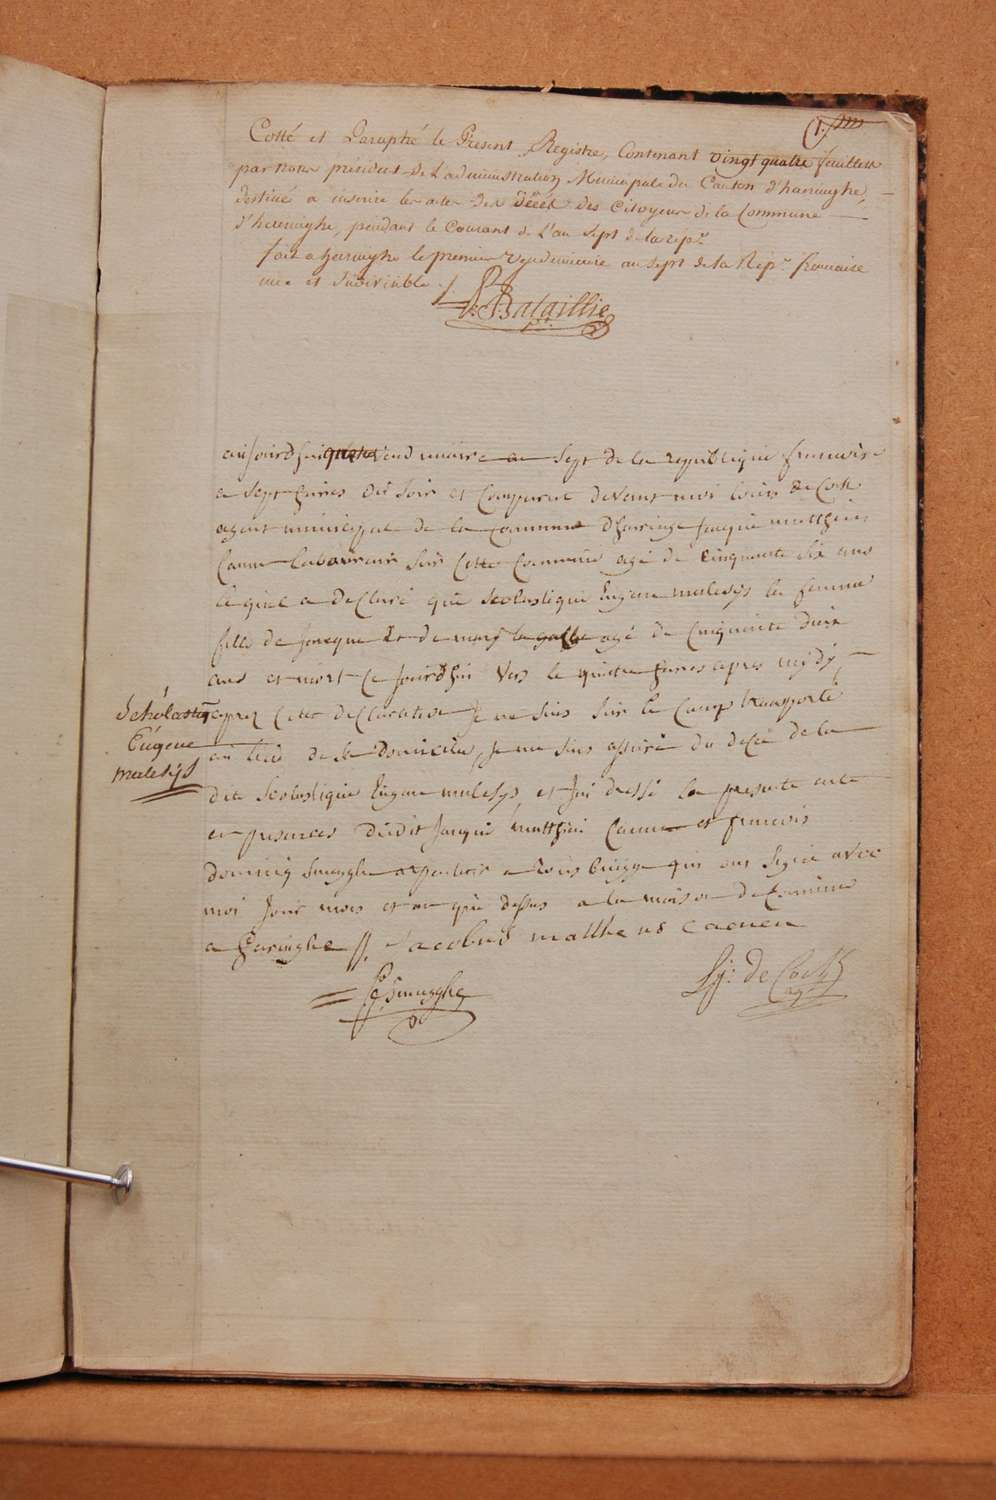 (1.)
Cotté et Paraphé le Present Registre, Contenant vingt quatre feuillets
par nous président de L'administration Municipale du Canton d'haringhe,
destiné a inscrire les actes des décés des Citoyens de la Commune
d'haringhe, pendant le Courant de L'an Sept de la rep.
fait a haringhe le premier vendemiaire an sept de la Rep. francaise
une et indivisible ./.
Bataillie
aujourdhui vendemiaire an Sept de la republique francoise
a Sept heures du Soir est Comparut devant moi Louis de Cock
agent municipal de la commune dharinge Jaque matthieu
Caenen Laboureur Sur Cette Commune agé de Cinquante Six ans
le quel a declaré que Scolastique Eugene malesys sa femme
fille de Jaeque et de marij agé de Cinquante deux
ans et mort Ce Jourdhui vers le quatre heures apres mydy
Scholastiq
Eugene
malesys
aprez Cette declaration Je me suis Sur le Camp transporté
au lieu de Se domicile, Je me suis assuré du decé de la
dite Scolastique Eugene malesys, et Jai dressé la presente acte
en presences dudit Jaque Matthieu Caenen et francois
dominiq Smaghe a qui ont Signé avec
moi Jour mois et an que dessus a la maison de Commune
a Haringhe //. Jacobus mattheus Caenen
Smaghe
de Cock
ag